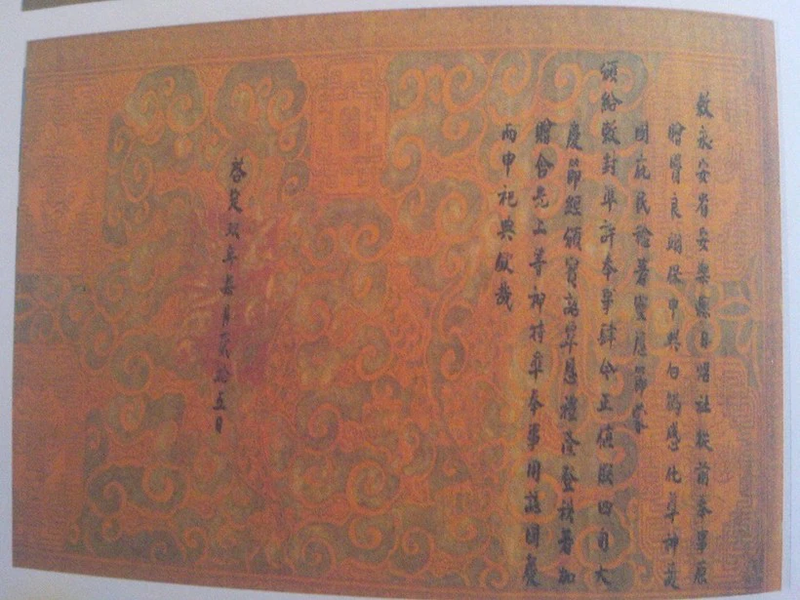 敕永安省安樂縣日昭社從前奉事原
贈良翊保中興白鶴感化尊神護
國庇民稔著靈應節蒙
頒給敕封準許奉事肆今正值朕四旬大
慶節經頒寶詔覃恩禮隆登秩著加
贈含光上等神特準奉事用誌國慶
而申祀典欽哉
啓定玖年柒月貳拾五日